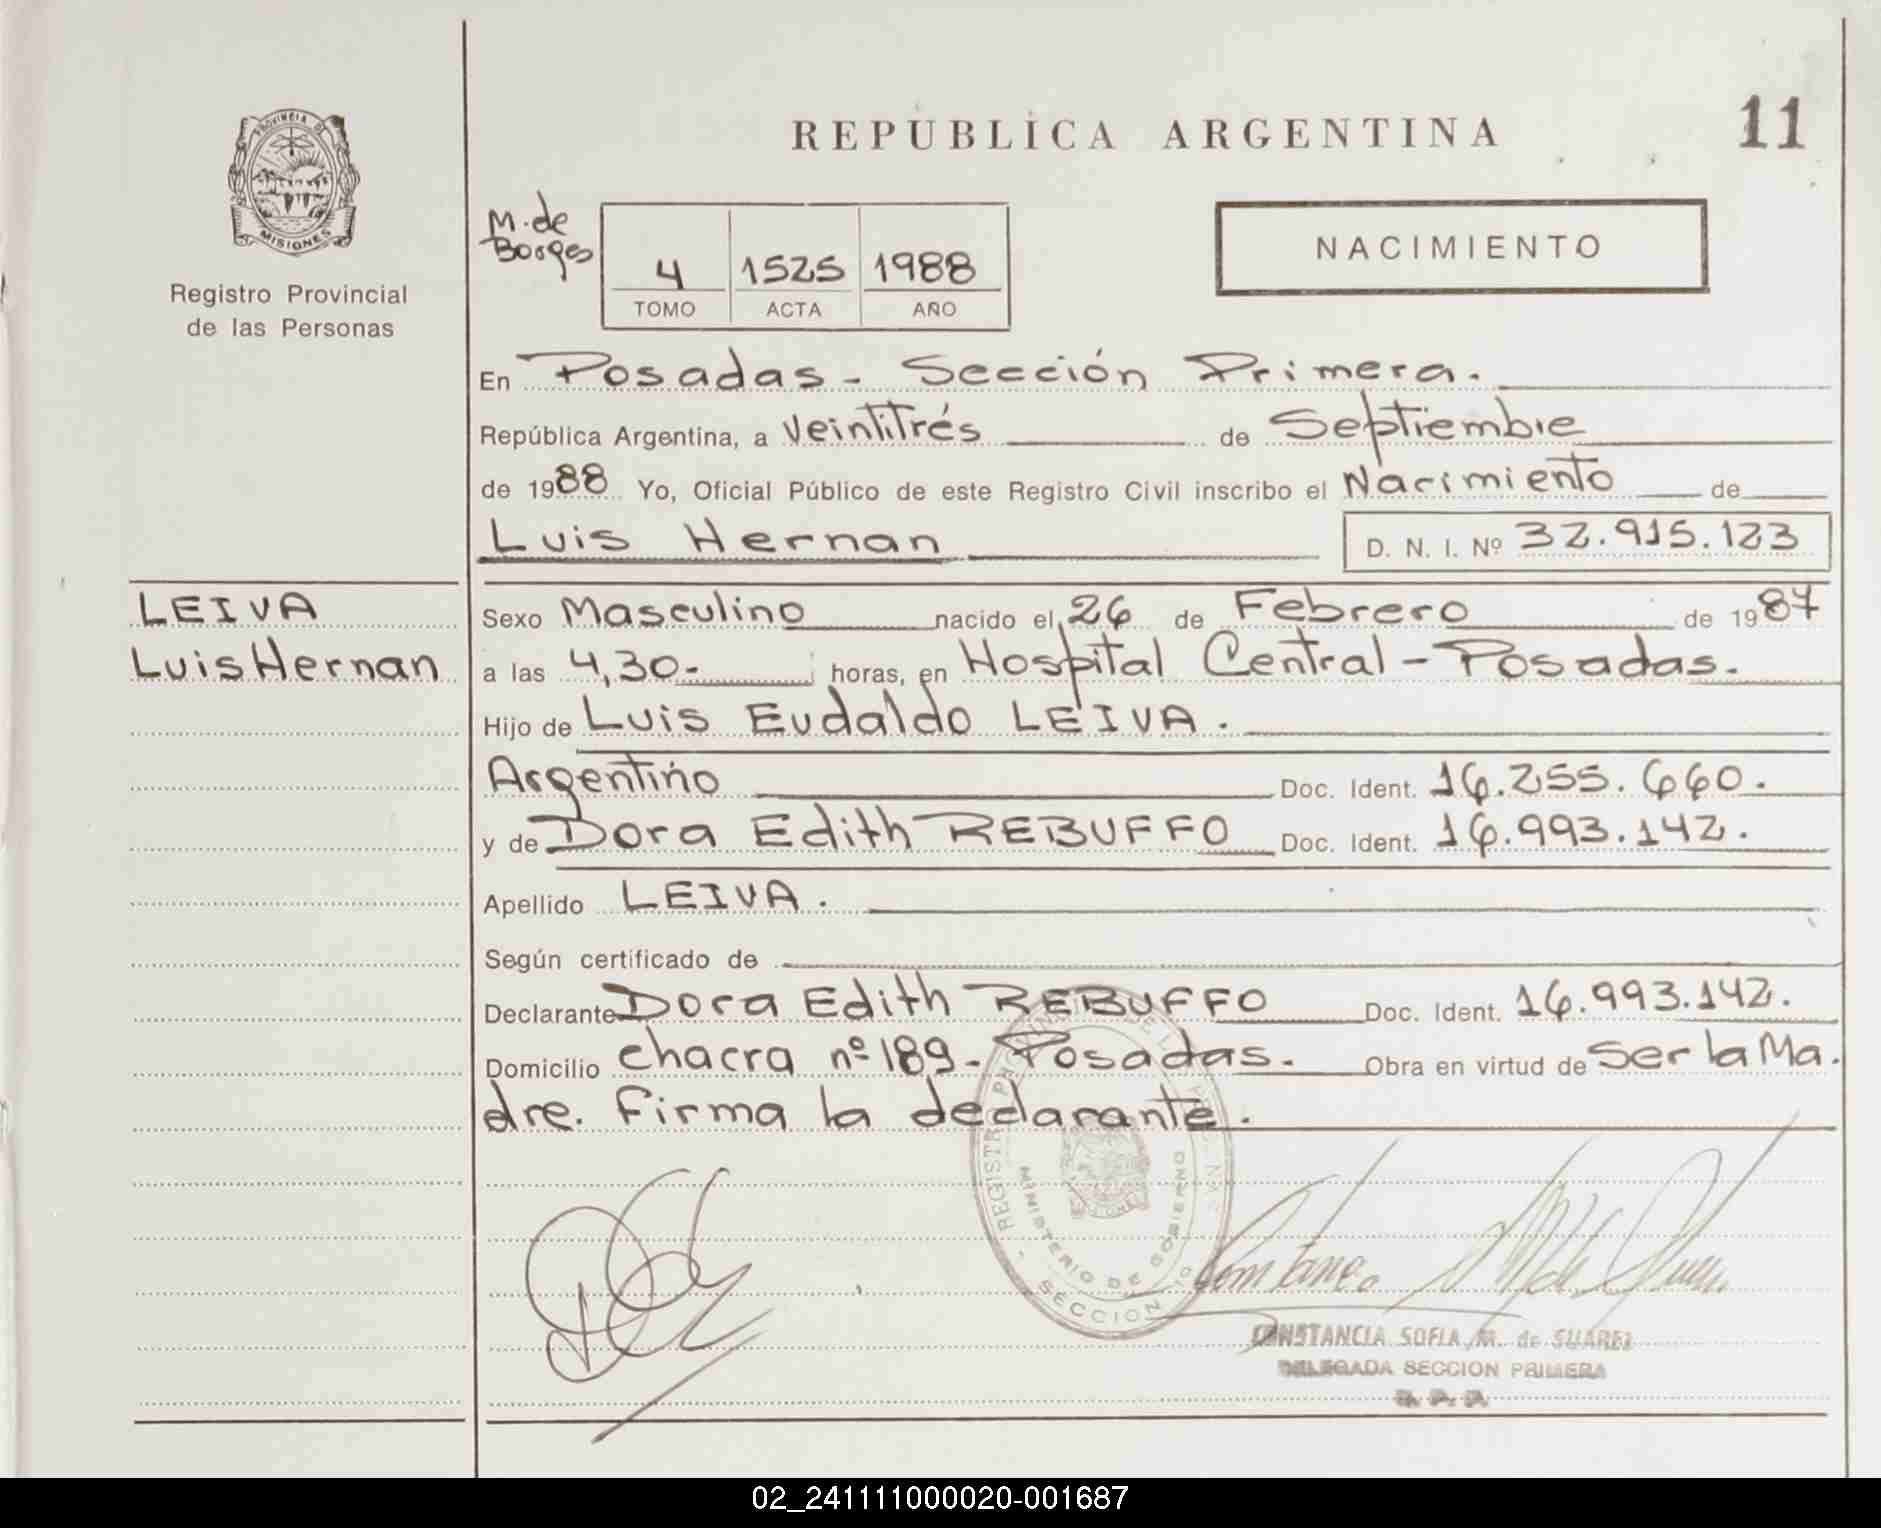 REPUBLICA ARGENTINA
11
PROVINCIA DE
MISIONES
Registro Provincial
de las Personas
M. de
Borges
4 1525 1988
TOMO ACTA AÑO
NACIMIENTO
En Posadas - Sección Primera.
República Argentina, a Veintitrés de Septiembre
de 1988 Yo, Oficial Público de este Registro Civil inscribo el Nacimiento de
Luis Hernan D. N. I. Nº 32.915.123
LEIVA
Luis Hernan
Sexo Masculino nacido el 26 de Febrero de 1987
a las 4,30- horas, en Hospital Central - Posadas.
Hijo de Luis Eudaldo LEIVA.
Argentino Doc. Ident. 16.255.660.
y de Dora Edith REBUFFO Doc. Ident. 16.993.142.
Apellido LEIVA.
Según certificado de
Declarante Dora Edith REBUFFO Doc. Ident. 16.993.142.
Domicilio chacra nº 189 - Posadas. Obra en virtud de Ser la Ma.
dre. Firma la declarante.
MINISTERIO DE GOBIERNO
SECCION 1º
CONSTANCIA SOFIA M. de SUAREZ
DELEGADA SECCION PRIMERA
02_241111000020-001687